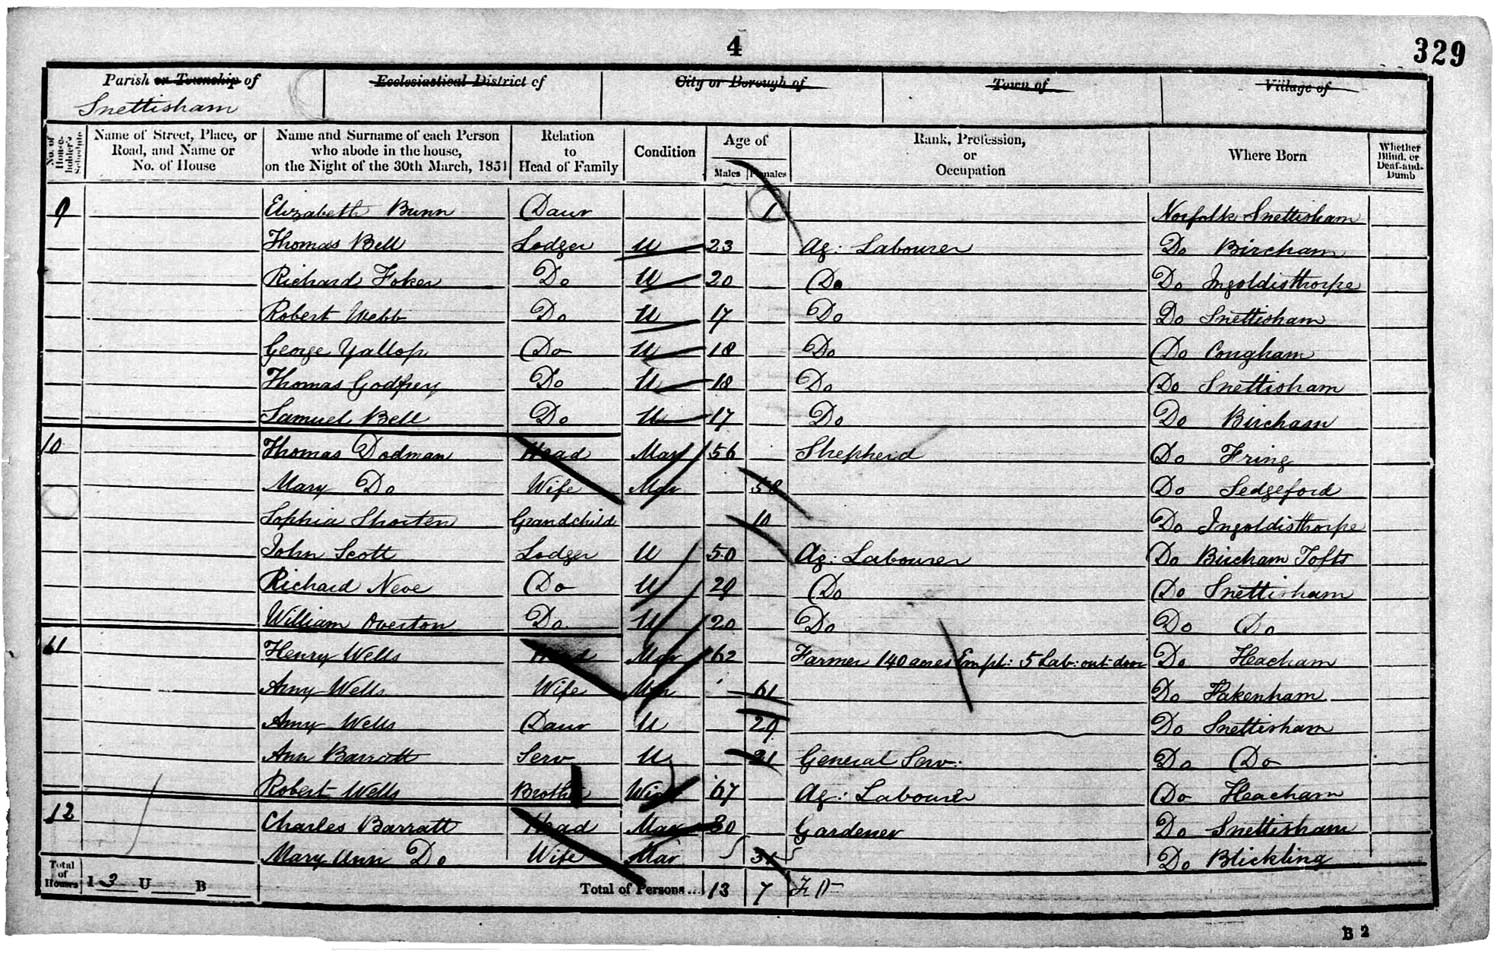 4
329
Parish or Township of Ecclesiastical District of City or Borough of Town of Village of
Snettisham
No. of House-holder's Schedule Name of Street, Place, or Road, and Name or No. of House Name and Surname of each Person who abode in the house, on the Night of the 30th March, 1851 Relation to Head of Family Condition Age of Males Females Rank, Profession, or Occupation Where Born Whether Blind, or Deaf-and-Dumb
9 Elizabeth Bunn Daur 1 Norfolk Snettisham
Thomas Bell Lodger U 23 Ag: Labourer Do Bircham
Richard Foker Do U 20 Do Do Ingoldisthorpe
Robert Webb Do U 17 Do Do Snettisham
George Yallop Do U 18 Do Do Congham
Thomas Godfrey Do U 18 Do Do Snettisham
Samuel Bell Do U 17 Do Do Bircham
10 Thomas Dodman Head Mar 56 Shepherd Do Fring
Mary Do Wife Mar 58 Do Sedgeford
Sophia Shorten Grandchild 10 Do Ingoldisthorpe
John Scott Lodger U 50 Ag: Labourer Do Bircham Tofts
Richard Neve Do U 29 Do Do Snettisham
William Overton Do U 20 Do Do Do
11 Henry Wells Head Mar 62 Farmer 140 acres Empl: 5 Lab: out-door Do Heacham
Amy Wells Wife Mar 61 Do Fakenham
Amy Wells Daur U 29 Do Snettisham
Ann Barratt Serv U 21 General Serv: Do Do
Robert Wells Brother Wid 67 Ag: Labourer Do Heacham
12 Charles Barratt Head Mar 30 Gardener Do Snettisham
Mary Ann Do Wife Mar 31 Do Blickling
Total of Houses I 3 U B Total of Persons... 13 7
B 2